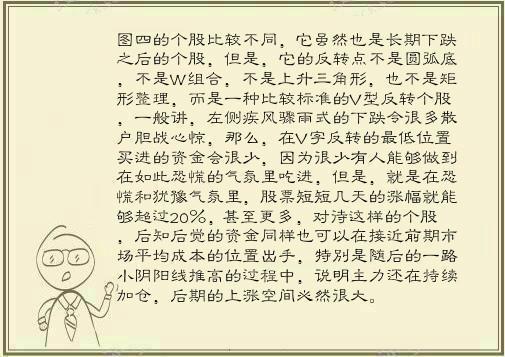 图四的个股比较不同，它虽然也是长期下跌
之后的个股，但是，它的反转点不是圆弧底
，不是W组合，不是上升三角形，也不是矩
形整理，而是一种比较标准的V型反转个股
，一般讲，左侧疾风骤雨式的下跌令很多散
户胆战心惊，那么，在V字反转的最低位置
买进的资金会很少，因为很少有人能够做到
在如此恐慌的气氛里吃进，但是，就是在恐
慌和犹豫气氛里，股票短短几天的涨幅就能
够超过20%，甚至更多，对待这样的个股
，后知后觉的资金同样也可以在接近前期市
场平均成本的位置出手，特别是随后的一路
小阴阳线推高的过程中，说明主力还在持续
加仓，后期的上涨空间必然很大。